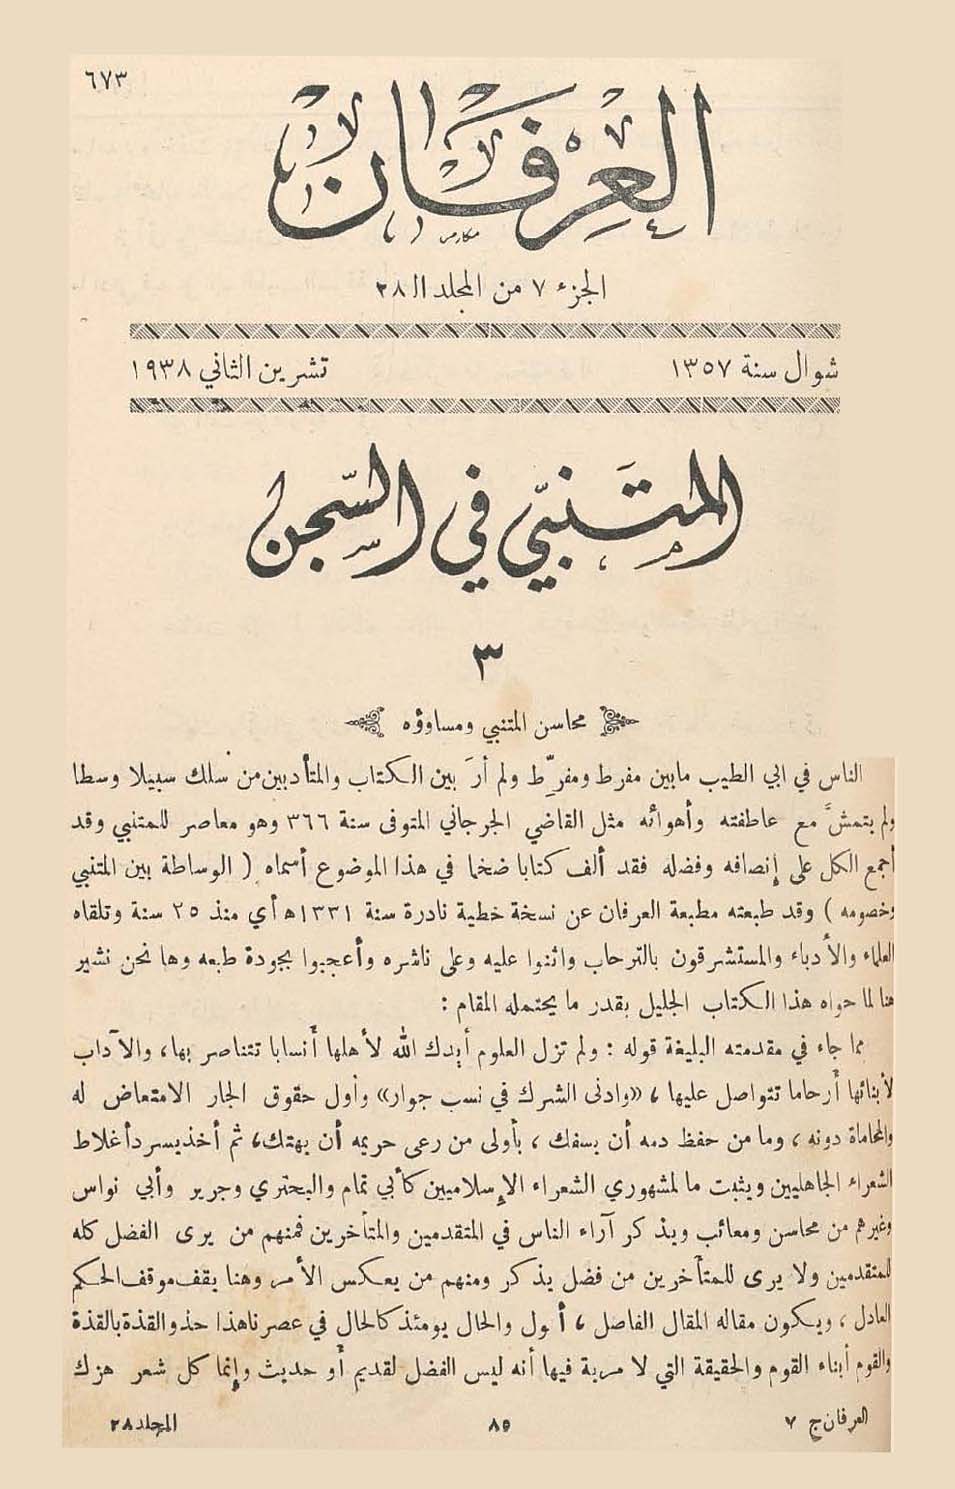 ٦٧٣
العرفان
مكارم
الجزء ٧ من المجلد الـ ٢٨
شوال سنة ١٣٥٧ تشرين الثاني ١٩٣٨
المتنبي في السجن
٣
محاسن المتنبي ومساوؤه
الناس في ابي الطيب مابين مفرط ومفرِّط ولم أرَ بين الكتاب والمتأدبين من سلك سبيلا وسطا
ولم يتمشَّ مع عاطفته وأهوائه مثل القاضي الجرجاني المتوفى سنة ٣٦٦ وهو معاصر للمتنبي وقد
أجمع الكل على إنصافه وفضله فقد ألف كتابا ضخما في هذا الموضوع أسماه ( الوساطة بين المتنبي
وخصومه ) وقد طبعته مطبعة العرفان عن نسخة خطية نادرة سنة ١٣٣١ه أي منذ ٢٥ سنة وتلقاه
العلماء والأدباء والمستشرقون بالترحاب واثنوا عليه وعلى ناشره وأعجبوا بجودة طبعه وها نحن نشير
هنا لما حواه هذا الكتاب الجليل بقدر ما يحتمله المقام :
مما جاء في مقدمته البليغة قوله : ولم تزل العلوم أيدك الله لأهلها أنسابا تتناصر بها، والآداب
لأبنائها أرحاما تتواصل عليها ، «وادنى الشرك في نسب جوار» وأول حقوق الجار الامتعاض له
والمحاماة دونه ، وما من حفظ دمه أن يسفك ، بأولى من رعى حريمه أن يهتك، ثم أخذ يسرد أغلاط
الشعراء الجاهليين ويثبت ما لمشهوري الشعراء الإسلاميين كأبي تمام والبحتري وجرير وأبي نواس
وغيرهم من محاسن ومعائب ويذكر آراء الناس في المتقدمين والمتأخرين فمنهم من يرى الفضل كله
للمتقدمين ولا يرى للمتأخرين من فضل يذكر ومنهم من يعكس الأمر وهنا يقف موقف الحكم
العادل ، ويكون مقاله المقال الفاصل ، أقول والحال يومئذ كالحال في عصرنا هذا حذو القذة بالقذة
والقوم أبناء القوم والحقيقة التي لا مرية فيها أنه ليس الفضل لقديم أو حديث وإنما كل شعر هزك
العرفان ج ٧ ٨٥ المجلد ٢٨